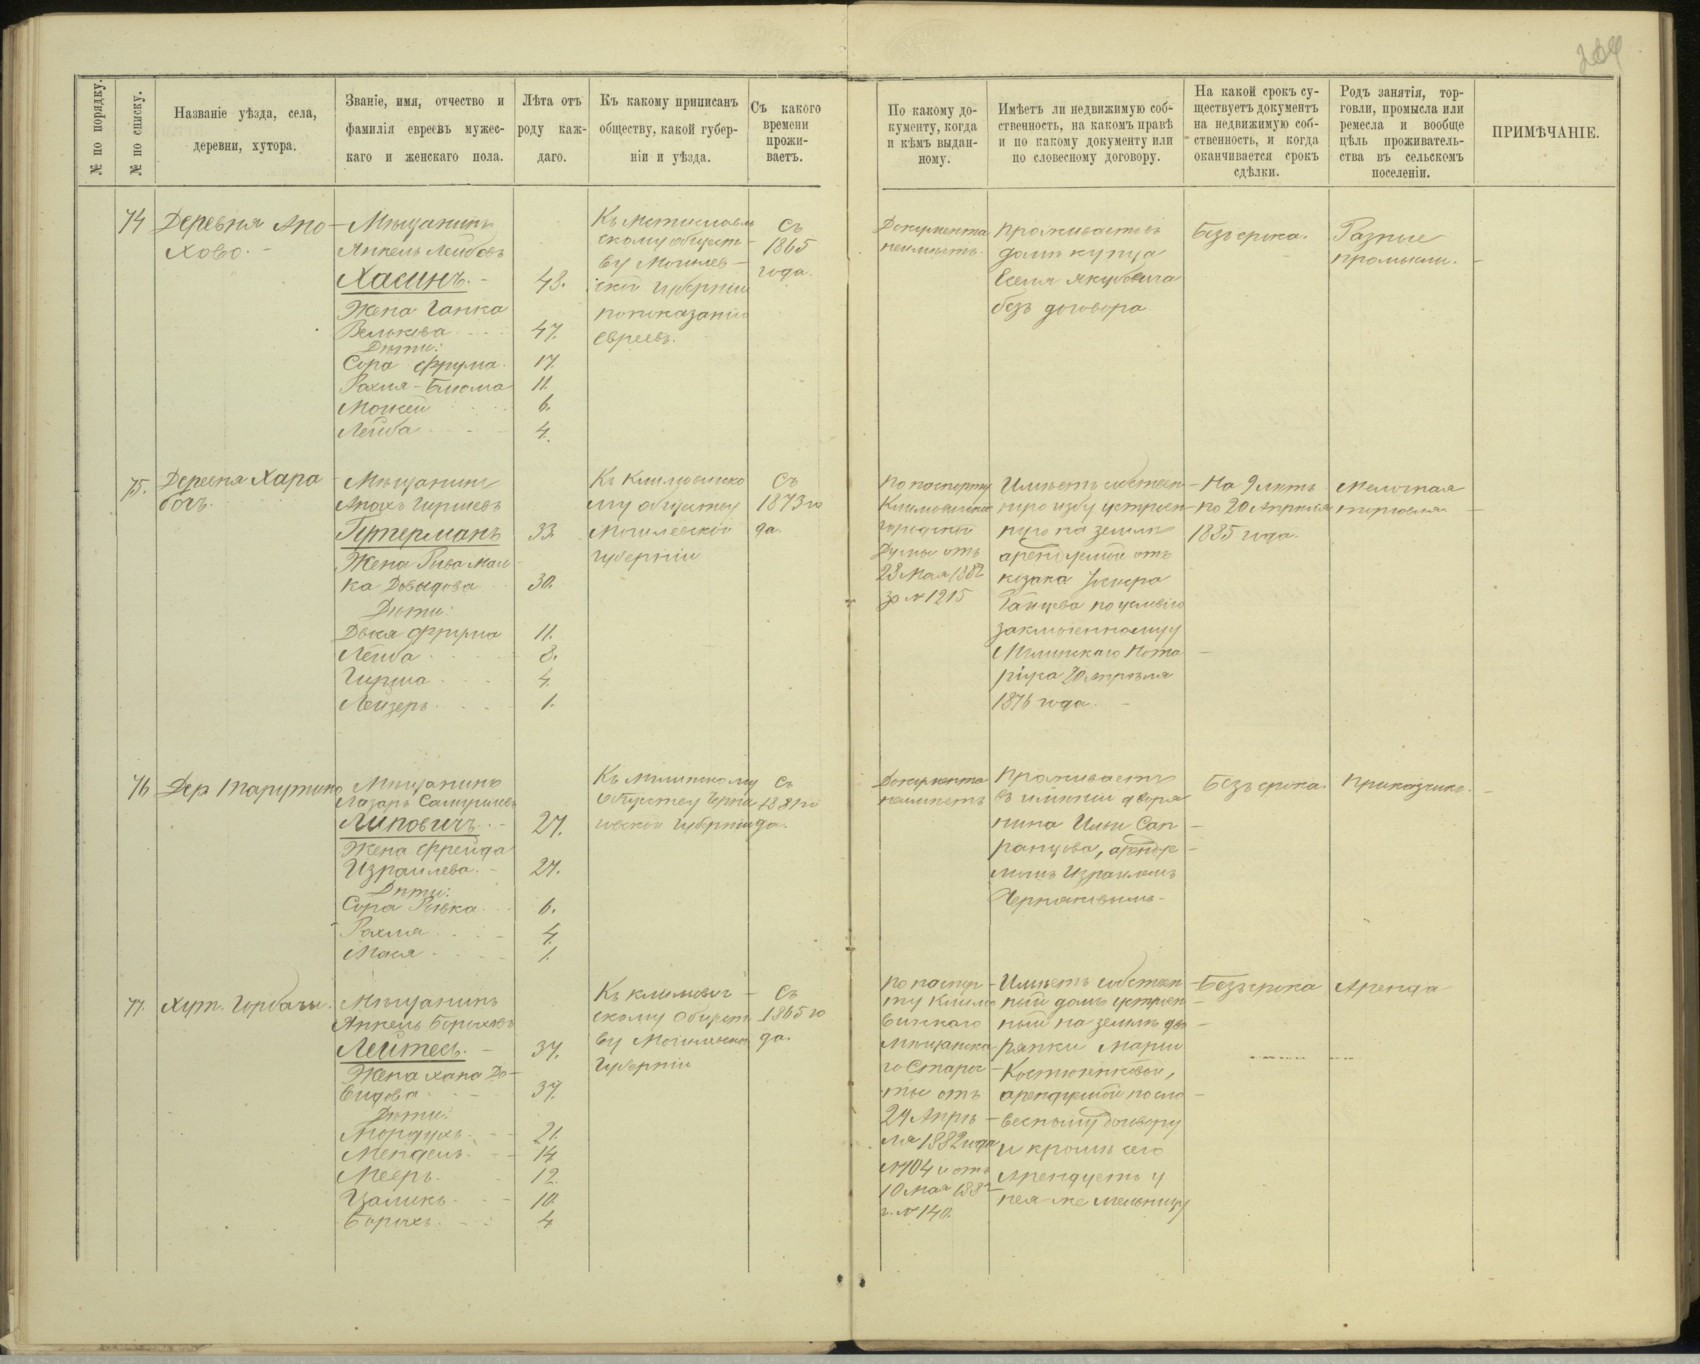 204
№ по порядку.
№ по списку.
Названіе уѣзда, села,
деревни, хутора.
Званіе, имя, отчество и
фамилія евреевъ мужес-
каго и женскаго пола.
Лѣта отъ
роду каж-
даго.
Къ какому приписанъ
обществу, какой губер-
ніи и уѣзда.
Съ какого
времени
прожи-
ваетъ.
По какому до-
кументу, когда
и кѣмъ выдан-
ному.
Имѣетъ ли недвижимую соб-
ственность, на какомъ правѣ
и по какому документу или
по словесному договору.
На какой срокъ су-
ществуетъ документъ
на недвижимую соб-
ственность, и когда
оканчивается срокъ
сдѣлки.
Родъ занятія, тор-
говли, промысла или
ремесла и вообще
цѣль проживатель-
ства въ сельскомъ
поселеніи.
ПРИМѢЧАНІЕ.
74
Деревня Апо-
хово.
Мѣщанинъ
Анкель Лейбовъ
Хасинъ. 48.
Жена Ганка
Велькова 47.
Дѣти:
Сора Фрума. 17.
Рахля-Блюма 11.
Моисей 6.
Лейба 4.
Къ Мстиславль
скому общест-
ву Могилев-
ской Губерніи
по показанію
евреевъ.
Съ
1865
года.
Документа
неимѣетъ.
Проживаетъ въ
домѣ купца
Еселя Якубовича
безъ договора
Безъ срока.
Разные
промыслы.
75.
Деревня Хара
бочъ.
Мѣщанинъ
Аподъ Гиршевъ
Гутерманъ 33.
Жена Рива Мал-
ка Довыдова 30.
Дѣти:
Двея Фрума 11.
Лейба 8.
Гирша 4.
Лейзеръ 1.
Къ Климовичко
му обществу
Могилевской
Губерніи
Съ
1873 го
да.
По паспорту
Климовичской
городской
Думы отъ
28 Мая 1882
за № 1215
Имѣетъ собствен-
ную избу устроен-
ную на землѣ
арендуемой отъ
козака
по условію
заключенному у
Мглинскаго Нота-
ріуса 20 апрѣля
1876 года.
На 9 лѣтъ
по 20 Апрѣля
1885 года.
Мелочная
торговля
76
Дер Тарутино
Мѣщанинъ
Лазарь Самуиловъ
Липовичъ 27.
Жена Фрейда
Израилева. 27.
Дѣти:
Сора Ривка 6.
Рахля 4.
Мася 1.
Къ Мглинскому
обществу Черни
говской Губерніи
Съ
1881 го
да.
Документа
неимѣетъ
Проживаетъ
въ имѣніи дворя
нина Ильи Сап
ранцова, аренд
Израилемъ
Безъ срока.
Приказчикъ.
77.
Хут. Горбачи.
Мѣщанинъ
Анкель Борухов
Лейтесъ. 37.
Жена Хана До-
видова 37.
Дѣти:
Мордухъ. 21.
Мендель. 14
Мееръ. 12.
Цаликъ. 10.
Борухъ. 4
Къ Климович-
скому общест
ву Могилевской
Губерніи
Съ
1865 го
да.
По паспор-
ту Климо
вичскаго
Мѣщанска-
го Старос-
ты отъ
24 Апрѣ-
ля 1882 года
№ 704 и отъ
10 Мая 1882
г. № 140.
Имѣетъ собствен
ный домъ устроен-
ный на землѣ дво-
рянки Маріи
Костюченковой,
арендуемой по сло-
весному договору
и кромѣ сего
Арендуетъ у
нея-же мельницу
Безъ срока
Аренда